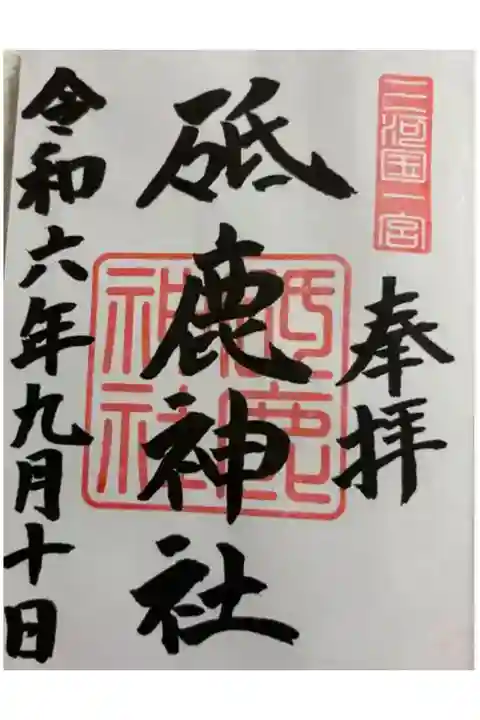 三河国一宮
奉拝
砥鹿神社
砥鹿
神社
令和六年九月十日